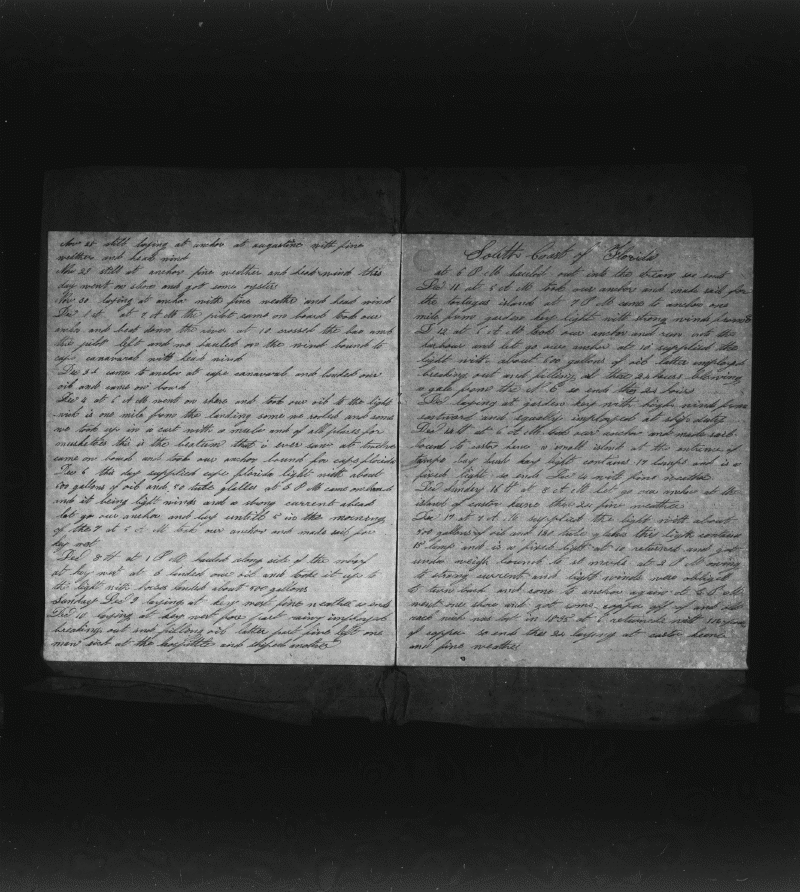 Nov 28 still laying at anchor at augustine with fine
weather and head wind
Nov 29 still at anchor fine weather and head wind this
day went on shore and got some oysters
Nov 30 laying at anchor with fine weather and head wind
Dec 1st at 7 A M the pilot came on board took our
anchor and beat down the river at 10 crossed the bar and
the pilot left and we hauled on the wind bound to
cape canaveral with head wind
Dec 3d came to anchor at cape canaveral and landed our
oil and came on board
Dec 4 at 6 A M went on shore and took our oil to the light
wich is one mile from the landing some we rooled and some
we took up in a cart with a mule and of all places for
musketoes this is the that i ever saw at twelve
came on board and took our anchor bound for cape florida
Dec 6 this day supplied cape florida light with about
gallons of oil and tube glasses at 5 P M came on board
and it being light winds and a strong current ahead
let go our anchor and lay until 5 in the morning
of the 7 at 5 A M took our anchor and made sail for
key west
Dec 8th at 1 P M hauled along side of the wharf
at key west at landed our oil and took it up to
the light with horses landed about gallons
Sunday Dec 9 laying at key west fine weather so ends
Dec 10 laying at key west fore part rainy employed
breaking out and filling oil latter part fine left one
man sick at the hospittle and shiped another
South Coast of Florida
at 5 P M hauled out into the stream so ends
Dec 11 at 6 A M took our anchor and made sail for
the tortugas island at 7 P M came to anchor one
mile from garden key light with strong winds
D 12 at 6 A M took our anchor and run into the
harbour and let go our anchor at 10 supplied the
light with about 500 gallons of oil latter employed
breaking out and filling oil these 24 hours blowing
a gale from the N E so ends the 24 hours
Dec laying at garden key with high winds from
eastward and equally imployed at ships duty
Dec 14th at 6 A M took our anchor and made sail
bound to eastor keene a small island at the entrance of
tampa bay light contains 14 lamps and is a
fixed light so ends Dec 15 with fine weather
Dec Sunday 16th at 8 A M let go our anchor at the
island of eastor keene these 24 fine weather
Dec 17 at 7 A M supplied the light with about
500 gallons of oil and 150 tube glasses this light contains
lamp and is a fixed light at 10 returned and got
under weigh bound to st marks at 2 P M owing
to strong current and light winds was obliged
to turn back and come to anchor again at P M
went one shore and got some copper off of and old
wich was lost in 1855 at 6 returned with pound
of copper so ends the 24 laying at eastor keene
and fine weather